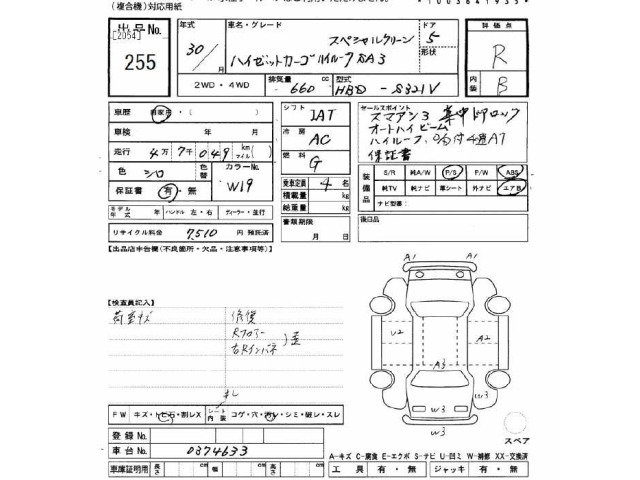 (複合機)対応用紙
出品No.
[2054]
255
年式
30/
月
車名・グレード
スペシャルクリーン
ハイゼットカーゴ ハイルーフSA3
ドア
5
形状
評価点
R
内装
B
2WD・4WD
排気量
660
cc
型式
HBD-S321V
車歴
自家用・( )
車検
年 月
走行
4万7千049
km
マイル
( )
色
シロ
色替
カラーNo.
W19
保証書
有・無
モデル年式
年
ハンドル 左・右
ディーラー・並行
リサイクル料金
7,510
円 預託済
シフト
IAT
冷房
AC
燃料
G
乗車定員
4
名
積載量
kg
給重量
kg
書類期限
月 日
セールスポイント
スマアシ3 集中ドアロック
オートハイビーム
ハイルーフ、
4速AT
保証書
装備品
S/R
純A/W
P/S
P/W
ABS
純TV
純ナビ
革シート
外ナビ
エアB
ナビ型番:
後日品
【出品店申告欄(不良箇所・欠品・注意事項等)】
【検査員記入】
荷室キズ
修復
Rフロアー
右Rインパネ
歪
A1
A1
U2
A2
A3
W3
W3
W3
W3
FW
キズ・トビ石・割レX
シート
内装
コゲ・穴・汚レ・シミ・破レ・スレ
登録No.
車台No.
0374633
車庫証明用
長
cm
幅
cm
高
cm
スペア
A-キズ C-腐食 E-エクボ S-サビ U-凹ミ W-補修 XX-交換済
工具
有・無
ジャッキ
有・無